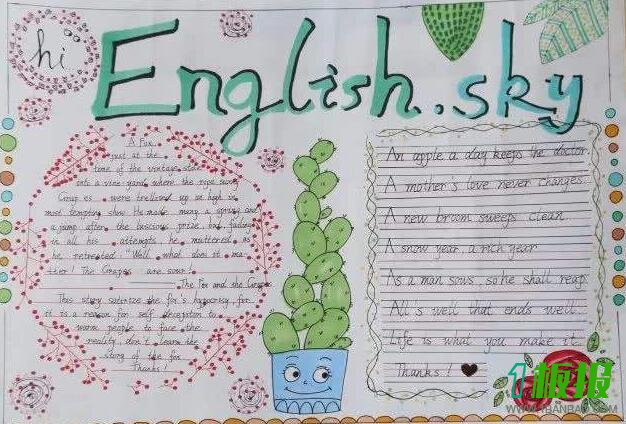 hi
English.sky
A Fox
just at the
time of the vintage stole
into a vine-yard where the ripe sunny
Grap es were trellised up on high in
most tempting show. He made many a spring and
a jump after the luscious prize and failing
in all his attempts he muttered as
he retreated "Well what does it ma-
tter! The Grapes are sour!
The Fox and the Grapes
This story satirize the fox's hypocrisy, for
it is a reason for self deception to
warm people to face the
reality, don't learn the
story of the fox.
Thanks!
An apple a day keeps the doctor
A mother's love never changes
A new broom sweeps clean
A snow year, a rich year
As a man sows, so he shall reap
All's well that ends well.
Life is what you make it.
Thanks!
1板报
WWW.1BANBAO.COM